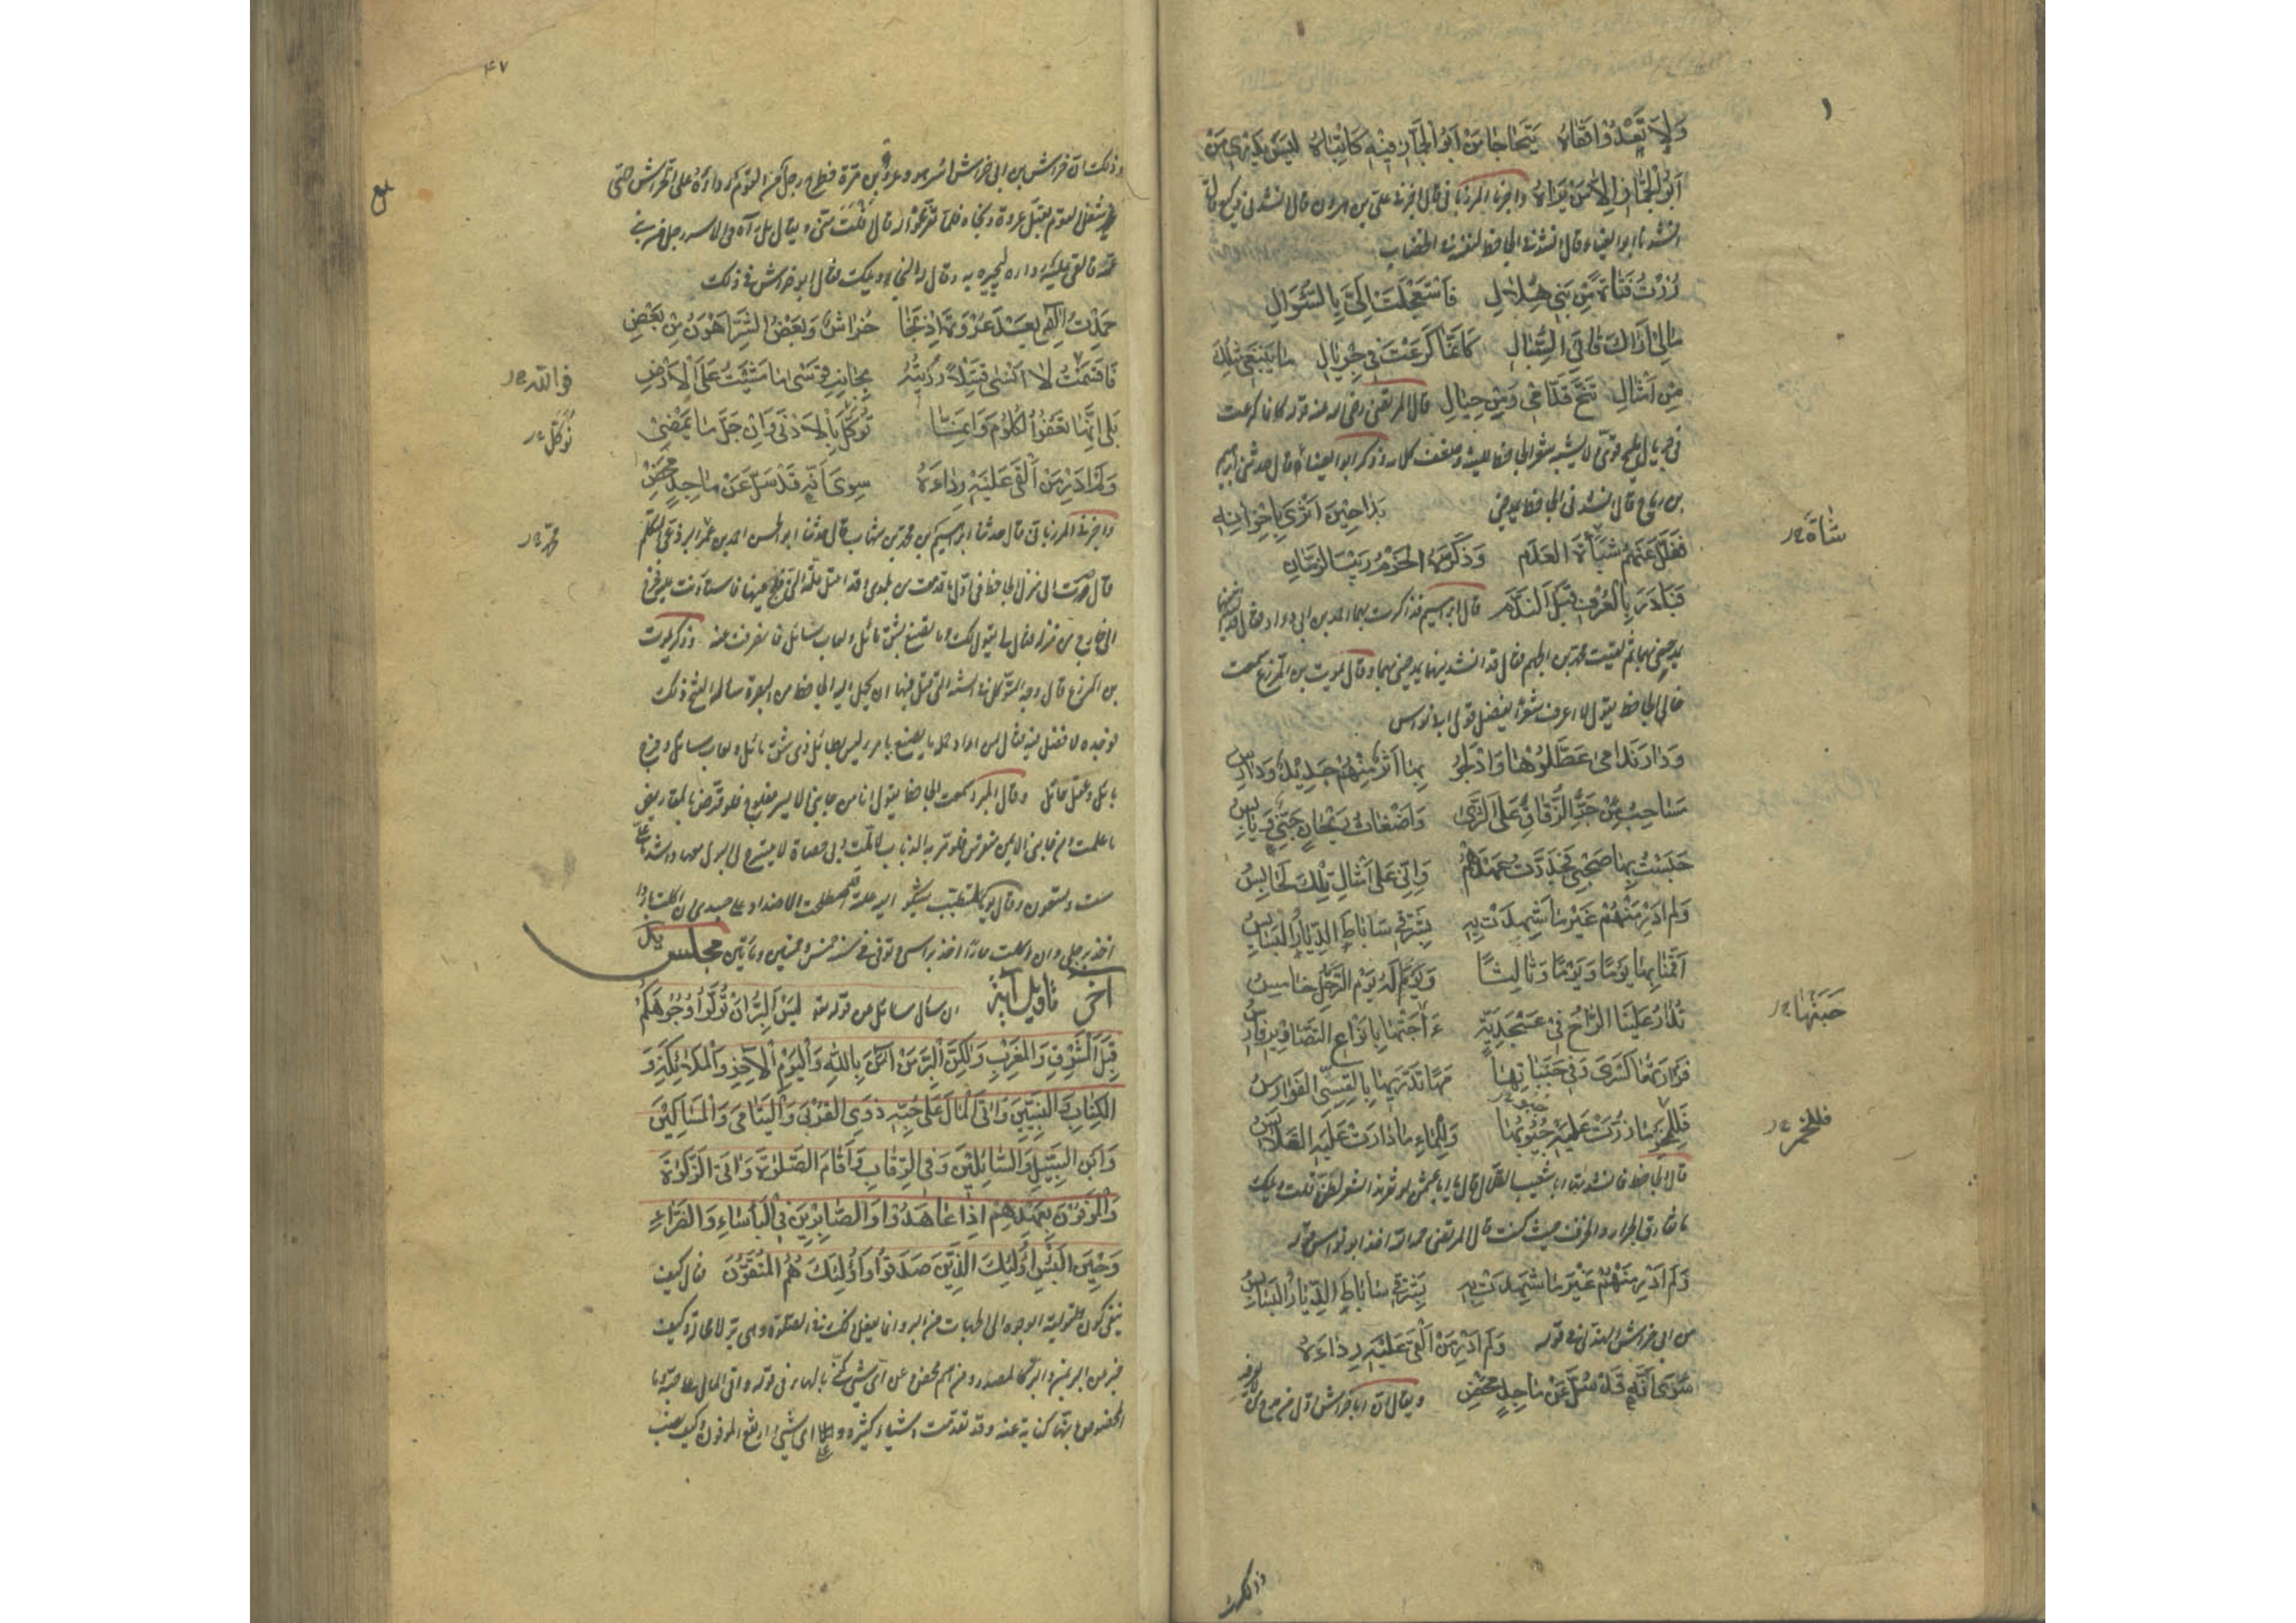 وَلَا تَعْدُوا قَفَاهُ يَتَحَاجَا مَنْ أَبُو الْجَمَّازِ فِيهِ كَاتِبَاهُ لَيْسَ يَدْرِي مَنْ
أَبُو الْجَمَّازِ إِلَّا مَنْ يَرَاهُ واخبرنا المرزباني قال اخبرني علي بن هرون قال انشدني وكيع قال
انشدنا ابو العيناء قال انشدني الجاحظ لنفسه في الخضاب
زُرْتُ فَتَاةً مِنْ بَنِي هِلَالِ فَاسْتَعْجَلَتْ إِلَيَّ بِالسُّؤَالِ
مَالِي أَرَاكَ قَانِيَ السِّبَالِ كَأَنَّمَا كَرَعْتَ فِي جِرْيَالِ مَا يَبْتَغِي مِثْلُكَ
مِنْ أَمْثَالِي تَنَحَّ قُدَّامِي وَمِنْ حِيَالِي قال المرتضى رضي الله عنه قوله كانما كرعت
في جريال مليح قوي لا يشبه شعر الجاحظ للينه وضعف كلامه وذكر ابو العيناء قال حدثني ابراهيم
بن رباح قال انشدني الجاحظ يمدحني بَدَا حِينَ أَثْرَى بِإِخْوَانِهِ
فَفَلَّلَ عَنْهُمْ شَبَاةَ الْعَدَمِ وَذَكَّرَهُ الْحَزْمُ رَيْبَ الزَّمَانِ
شَبَاةَ
فَبَادَرَ بِالْعُرْفِ قَبْلَ النَّدَمِ قال ابراهيم فذاكرت بهما احمد بن ابي دواد فقال قد انشدنيهما
يمدحني بهما ثم لقيت محمد بن الجهم فقال قد انشدنيهما يمدحني بهما وقال يموت بن المزرع سمعت
خالي الجاحظ يقول لا اعرف شعرا يفضل قول ابي نواس
وَدَارِ نَدَامَى عَطَّلُوهَا وَأَدْلَجُوا بِهَا أَثَرٌ مِنْهُمْ جَدِيدٌ وَدَارِسُ
مَسَاحِبُ مِنْ جَرِّ الزِّقَاقِ عَلَى الثَّرَى وَأَضْغَاثُ رَيْحَانٍ جَنِيٌّ وَيَابِسُ
حَبَسْتُ بِهَا صَحْبِي فَجَدَّدْتُ عَهْدَهُمْ وَإِنِّي عَلَى أَمْثَالِ تِلْكَ لَحَابِسُ
وَلَمْ أَدْرِ مِنْهُمْ غَيْرَ مَا شَهِدَتْ بِهِ بِشَرْقِيِّ سَابَاطِ الدِّيَارُ الْبَسَابِسُ
أَقَمْنَا بِهَا يَوْمًا وَيَوْمًا وَثَالِثًا وَيَوْمًا لَهُ يَوْمُ التَّرَحُّلِ خَامِسُ
تُدَارُ عَلَيْنَا الرَّاحُ فِي عَسْجَدِيَّةٍ حَبَتْهَا بِأَنْوَاعِ التَّصَاوِيرِ فَارِسُ
حَبَتْهَا
قَرَارَتُهَا كِسْرَى وَفِي جَنَبَاتِهَا مَهًا تَدَّرِيهَا بِالْقِسِيِّ الْفَوَارِسُ
فَلِلْخَمْرِ مَا زُرَّتْ عَلَيْهِ جُيُوبُهَا وَلِلْمَاءِ مَا دَارَتْ عَلَيْهِ الْقَلَانِسُ
فللخمر
قال الجاحظ فانشدتها ابا شعيب القلال فقال يا ابا عثمن لو نقر هذا الشعر لطن فقلت ويلك
ما تفارق الجرار والخزف حيث كنت قال المرتضى رحمه الله اخذ ابو نواس قوله
وَلَمْ أَدْرِ مِنْهُمْ غَيْرَ مَا شَهِدَتْ بِهِ بِشَرْقِيِّ سَابَاطِ الدِّيَارُ الْبَسَابِسُ
من ابي خراش الهذلي في قوله وَلَمْ أَدْرِ مَنْ أَلْقَى عَلَيْهِ رِدَاءَهُ
سِوَى أَنَّهُ قَدْ سُلَّ عَنْ مَاجِدٍ مَحْضِ ويقال ان ابا خراش اول من مدح من لا يعرفه
وذلك
۴۷
وذلك ان خراش بن ابي خراش اسر هو وعروة بن مرة فطرح رجل من القوم رداءه على خراش حتى
شغل القوم بقتل عروة ونجاه فلما تفرغوا له قال افلت مني ويقال بل رآه في الاسر رجل من بني
عمه فالقى عليه رداءه ليجيره به وقال له النجاء ويلك فقال ابو خراش في ذلك
حَمِدْتُ إِلَهِي بَعْدَ عُرْوَةَ إِذْ نَجَا خُرَاشٌ وَبَعْضُ الشَّرِّ أَهْوَنُ مِنْ بَعْضِ
فَأَقْسَمْتُ لَا أَنْسَى قَتِيلًا رُزِيتُهُ بِجَانِبِ قَوْسَى مَا مَشَيْتُ عَلَى الْأَرْضِ
فوالله
بَلَى إِنَّهَا تَعْفُو الْكُلُومُ وَإِنَّمَا تُوَكَّلُ بِالْأَدْنَى وَإِنْ جَلَّ مَا يَمْضِي
نُوَكَّلُ
وَلَمْ أَدْرِ مَنْ أَلْقَى عَلَيْهِ رِدَاءَهُ سِوَى أَنَّهُ قَدْ سُلَّ عَنْ مَاجِدٍ مَحْضِ
واخبرنا المرزباني قال حدثنا ابرهيم بن محمد بن شهاب قال حدثنا ابو الحسن احمد بن عمر البرذعي المتكلم
محمد
قال صرت الى منزل الجاحظ في اول ما قدمت من بلدي وقد اعتل علته التي فلج فيها فاستاذنت عليه فخرج
الي خادم من منزله فقال لي يقول لك وما تصنع بشق مائل ولعاب سائل فانصرفت عنه وذكر يموت
بن المزرع قال وجه المتوكل في السنة التي قتل فيها ان يحمل اليه الجاحظ من البصرة ساله الفتح ذلك
فوجده لا فضل فيه فقال لمن اراد حمله ما يصنع بامرء ليس بطائل ذي شق مائل ولعاب سائل وفرج
بائل وعقل حائل وقال المبرد سمعت الجاحظ يقول انا من جانبي الايسر مفلوج فلو قرض بالمقاريض
ما علمت ومن جانبي الايمن منقرس فلو مر به الذباب لالمت وبي حصاة لا يسرح لي البول معها واشد ما علي
ست وتسعون وقال يوما لمتطبب يشكو اليه علته اصطلحت الاضداد على جسدي ان اكلت باردا
اخذ برجلي وان اكلت حارا اخذ براسي وتوفي في سنة خمس وخمسين ومأتين مجلس
آخر تاويل آية ان سال سائل عن قوله تعالى لَيْسَ الْبِرَّ أَنْ تُوَلُّوا وُجُوهَكُمْ
قِبَلَ الْمَشْرِقِ وَالْمَغْرِبِ وَلَكِنَّ الْبِرَّ مَنْ آمَنَ بِاللَّهِ وَالْيَوْمِ الْآخِرِ وَالْمَلَائِكَةِ وَ
الْكِتَابِ وَالنَّبِيِّينَ وَآتَى الْمَالَ عَلَى حُبِّهِ ذَوِي الْقُرْبَى وَالْيَتَامَى وَالْمَسَاكِينَ
وَابْنَ السَّبِيلِ وَالسَّائِلِينَ وَفِي الرِّقَابِ وَأَقَامَ الصَّلَوةَ وَآتَى الزَّكَوةَ
وَالْمُوفُونَ بِعَهْدِهِمْ إِذَا عَاهَدُوا وَالصَّابِرِينَ فِي الْبَأْسَاءِ وَالضَّرَّاءِ
وَحِينَ الْبَأْسِ أُولَئِكَ الَّذِينَ صَدَقُوا وَأُولَئِكَ هُمُ الْمُتَّقُونَ فقال كيف
ينفي كون التولية الوجوه الى الجهات من البر وانما يفعل ذلك في الصلوة وهي بر لا محالة وكيف
خبر عن البر بمن والبر كالمصدر ومن اسم محض وعن اي شيء كنى بالهاء في قوله وآتى المال على حبه وما
المخصوص بانها كناية عنه وقد تقدمت اشياء كثيرة وعلى اي شيء ارتفع الموفون وكيف نصب